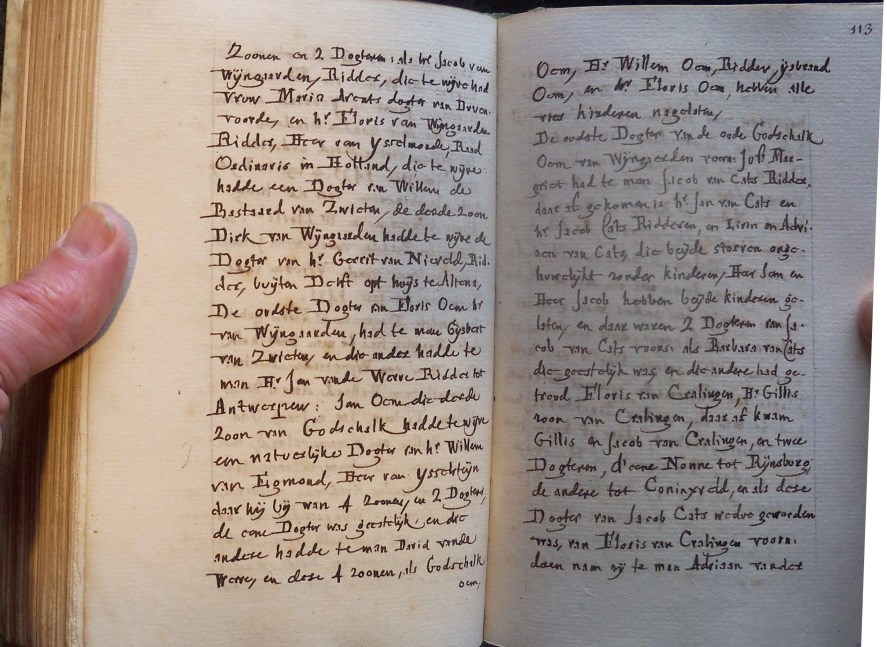 Zoonen en 2 Dogteren: als hr. Jacob van
Wijngaarden, Ridder, die te wijve had
Vrow Maria Arents dogter van Duven-
voorde, en hr. Floris van Wijngaarden
Ridder, Heer van Ysselmonde, Raad
Ordinaris in Holland, die te wijve
hadde een Dogter van Willem de
Bastaard van Zwieten, de derde zoon
Dirk van Wijngaarden hadde te wijve de
Dogter van hr. Gerrit van Nieveld, Rid-
der, buijten Delft opt huijs te Altena,
De oudste Dogter van Floris Oem hr
van Wijngaarden, had te man Gijsbert
van Zwieten, en die ander hadde te
man Hr. Jan vande Werve Ridder tot
Antwerpen: Jan Oem die derde
zoon van Godschalk hadde te wijve
een natuerlijke Dogter van hr. Willem
van Egmond, Heer van Ysselsteijn
daar hij bij wan 4 zoonen, en 2 Dogters,
de eene Dogter was geestelijk, en die
andere hadde te man David vande
Werve, en dese 4 zoonen, als Godschalk
oem,
113
Oem, Hr. Willem Oem, Ridder, ijsbrand
Oem, en hr. Floris Oem, hebben alle
vier kinderen nagelaten,
De oudste Dogter van de oude Godschalk
Oem van Wijngaerden voorn: Jofr. Mar-
griet had te man Jacob van Cats Ridder,
daar af gekomen is hr. Jan van Cats en
hr. Jacob Cats Ridderen, en en Adri-
aen van Cats, die beijde storven onge-
huwelijkt zonder kinderen, Heer Jan en
Heer Jacob hebben beijde kinderen ge-
laten, en daar waren 2 Dogteren van Ja-
cob van Cats voors: als Barbara van Cats
die geestelijk was, en die andere had ge-
troud Floris van Cralingen, Hr. Gillis
zoon van Cralingen, daar af kwam
Gillis en Jacob van Cralingen, en twee
Dogteren, d'eene Nonne tot Rijnsburg,
de andere tot Coninxveld, en als dese
Dogter van Jacob Cats weduwe geworden
was, van Floris van Cralingen voorn:
doen nam zij te man Adriaan vander